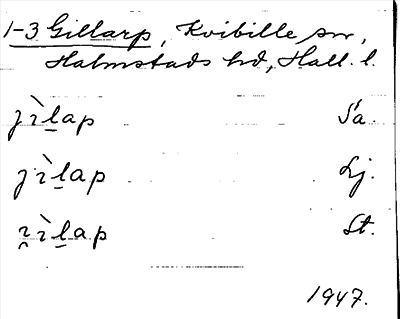 1-3 Gillarp, Kvibille sn,
Halmstads hd, Hall. l.
jı̀l̲ap Sa.
jı̀l̲ap Lj.
ı̯ı̀l̲ap St.
1947.